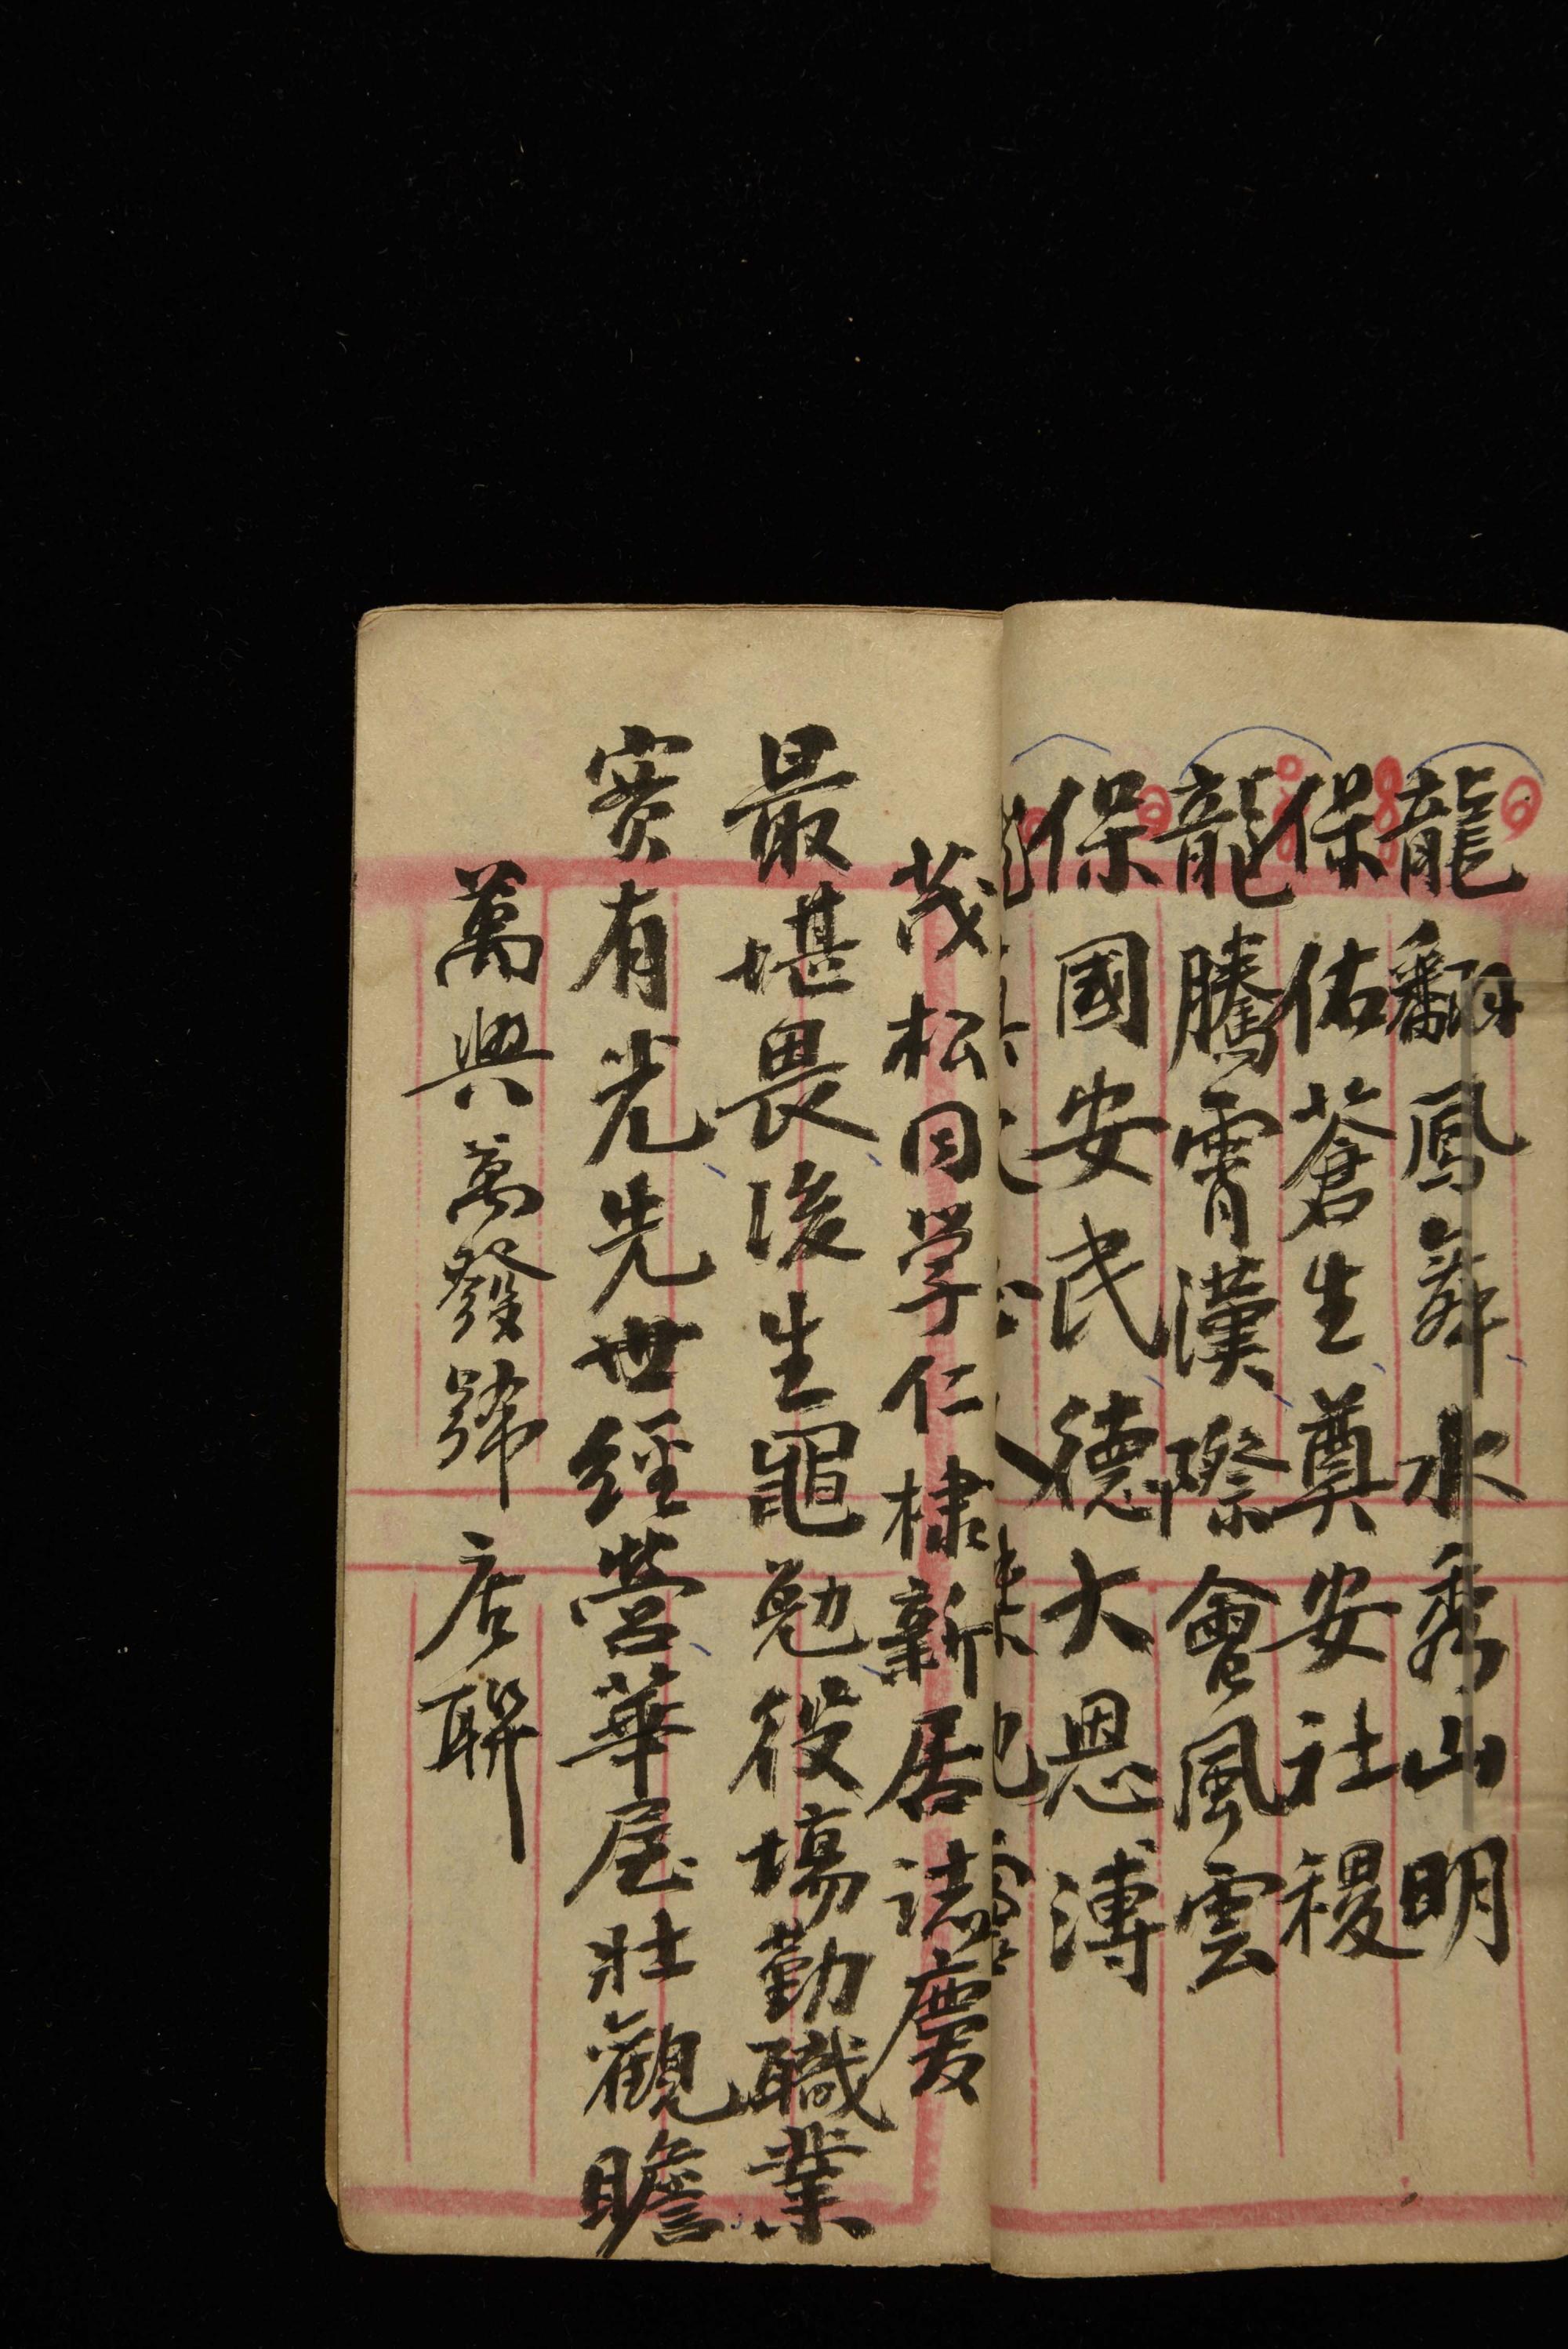 龍翻鳳舞水秀山明
保佑蒼生奠安社稷
龍騰霄漢際會風雲
保國安民德大恩溥
茂松同学仁棣新居誌慶
最堪畏後生黽勉役場勤職業
实有光先世經營華屋壯觀瞻
萬興萬發號店聯